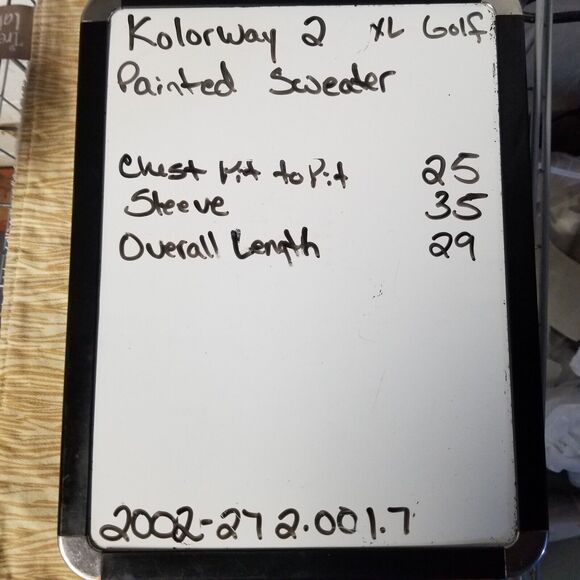 Kolorway 2 XL Golf
Painted Sweater
Chest Pit to Pit 25
Sleeve 35
Overall Length 29
2002-27 2.001.7